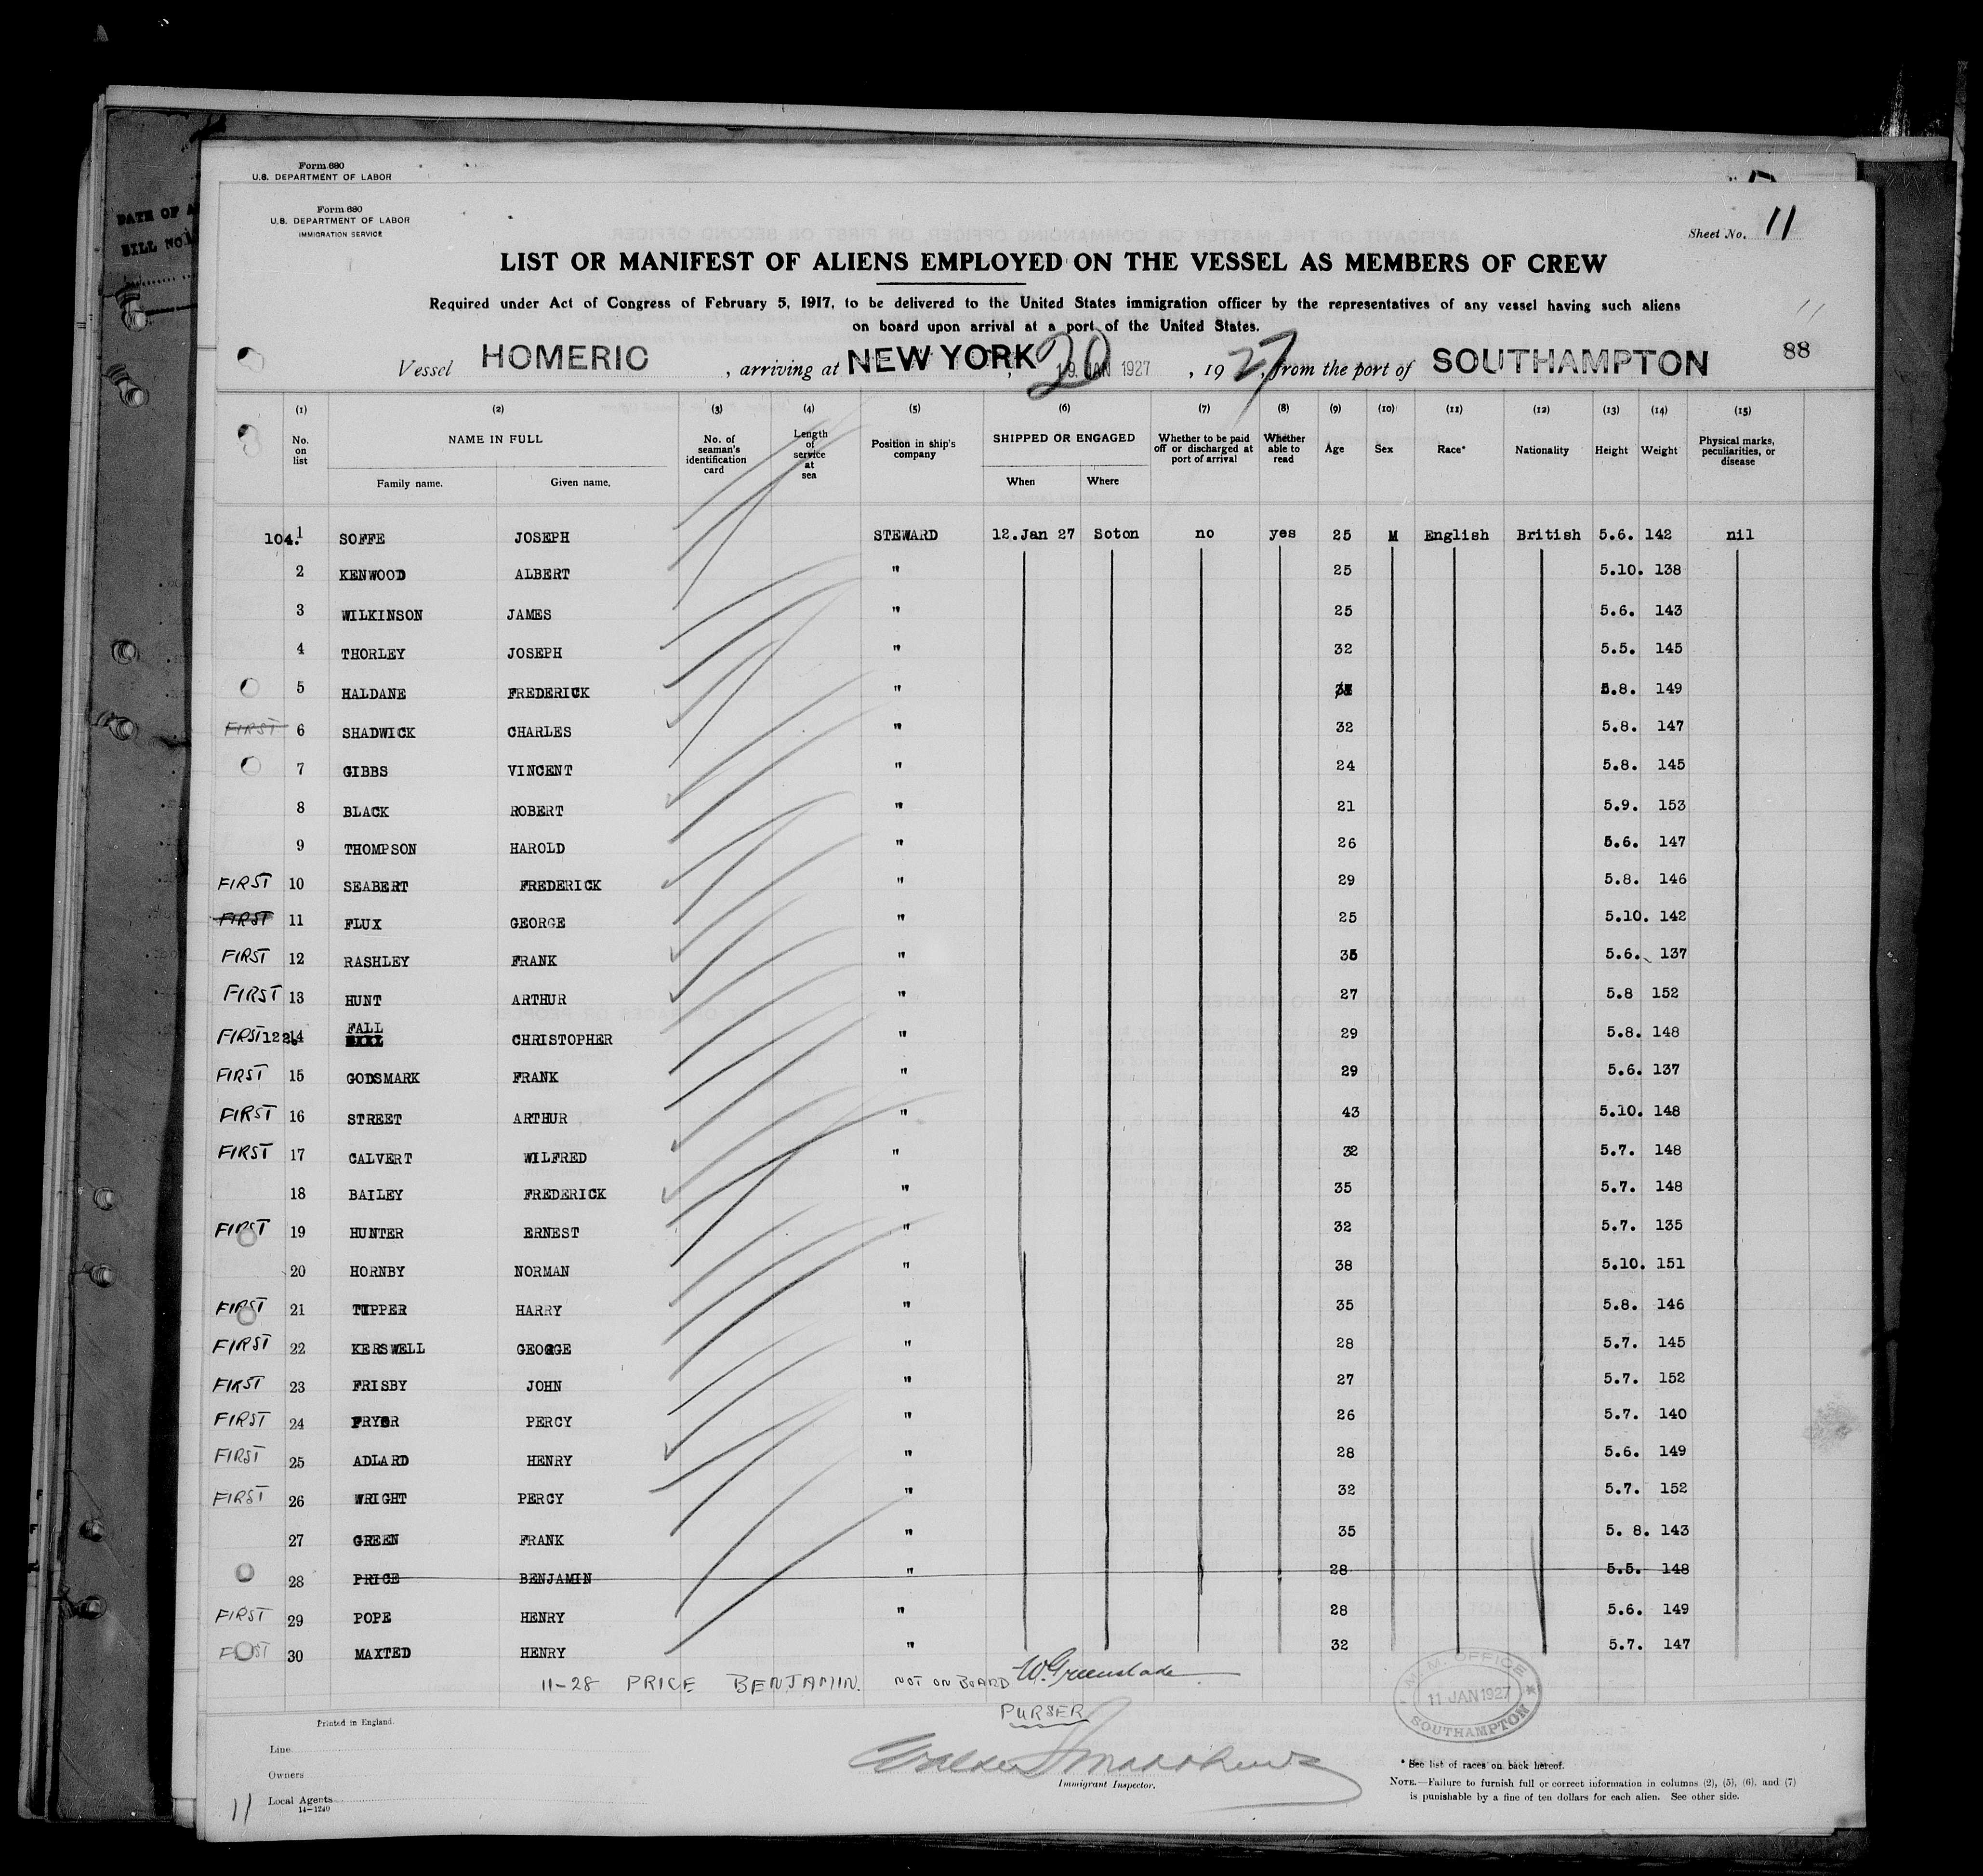 Form 680
U.S. DEPARTMENT OF LABOR
Form 680
U.S. DEPARTMENT OF LABOR
IMMIGRATION SERVICE
DATE OF A
BILL NO.
Sheet No. 11
LIST OR MANIFEST OF ALIENS EMPLOYED ON THE VESSEL AS MEMBERS OF CREW
Required under Act of Congress of February 5, 1917, to be delivered to the United States immigration officer by the representatives of any vessel having such aliens
on board upon arrival at a port of the United States.
11
88
Vessel HOMERIC, arriving at NEW YORK, 20 19. JAN 1927, 1927, from the port of SOUTHAMPTON
(1) (2) (3) (4) (5) (6) (7) (8) (9) (10) (11) (12) (13) (14) (15)
No. on list NAME IN FULL Family name. Given name. No. of seaman's identification card Length of service at sea Position in ship's company SHIPPED OR ENGAGED When Where Whether to be paid off or discharged at port of arrival Whether able to read Age Sex Race* Nationality Height Weight Physical marks, peculiarities, or disease
104. 1 SOFFE JOSEPH STEWARD 12.Jan 27 Soton no yes 25 M English British 5.6. 142 nil
2 KENWOOD ALBERT " 25 5.10. 138
3 WILKINSON JAMES " 25 5.6. 143
4 THORLEY JOSEPH " 32 5.5. 145
5 HALDANE FREDERICK " 5.8. 149
FIRST 6 SHADWICK CHARLES " 32 5.8. 147
7 GIBBS VINCENT " 24 5.8. 145
8 BLACK ROBERT " 21 5.9. 153
9 THOMPSON HAROLD " 26 5.6. 147
FIRST 10 SEABERT FREDERICK " 29 5.8. 146
FIRST 11 FLUX GEORGE " 25 5.10. 142
FIRST 12 RASHLEY FRANK " 35 5.6. 137
FIRST 13 HUNT ARTHUR " 27 5.8 152
FIRST 122. 14 FALL CHRISTOPHER " 29 5.8. 148
FIRST 15 GODSMARK FRANK " 29 5.6. 137
FIRST 16 STREET ARTHUR " 43 5.10. 148
FIRST 17 CALVERT WILFRED " 32 5.7. 148
18 BAILEY FREDERICK " 35 5.7. 148
FIRST 19 HUNTER ERNEST " 32 5.7. 135
20 HORNBY NORMAN " 38 5.10. 151
FIRST 21 TUPPER HARRY " 35 5.8. 146
FIRST 22 KERSWELL GEORGE " 28 5.7. 145
FIRST 23 FRISBY JOHN " 27 5.7. 152
FIRST 24 PRYOR PERCY " 26 5.7. 140
FIRST 25 ADLARD HENRY " 28 5.6. 149
FIRST 26 WRIGHT PERCY " 32 5.7. 152
27 GREEN FRANK " 35 5. 8. 143
28 PRICE BENJAMIN " 28 5.5. 148
FIRST 29 POPE HENRY " 28 5.6. 149
FIRST 30 MAXTED HENRY " 32 5.7. 147
11-28 PRICE BENJAMIN. NOT ON BOARD W. Greenslade
PURSER
M.M. OFFICE
11 JAN 1927
SOUTHAMPTON
Printed in England.
Line
Owners
Local Agents
14-1240
11
Immigrant Inspector.
* See list of races on back hereof.
NOTE.—Failure to furnish full or correct information in columns (2), (5), (6), and (7)
is punishable by a fine of ten dollars for each alien. See other side.